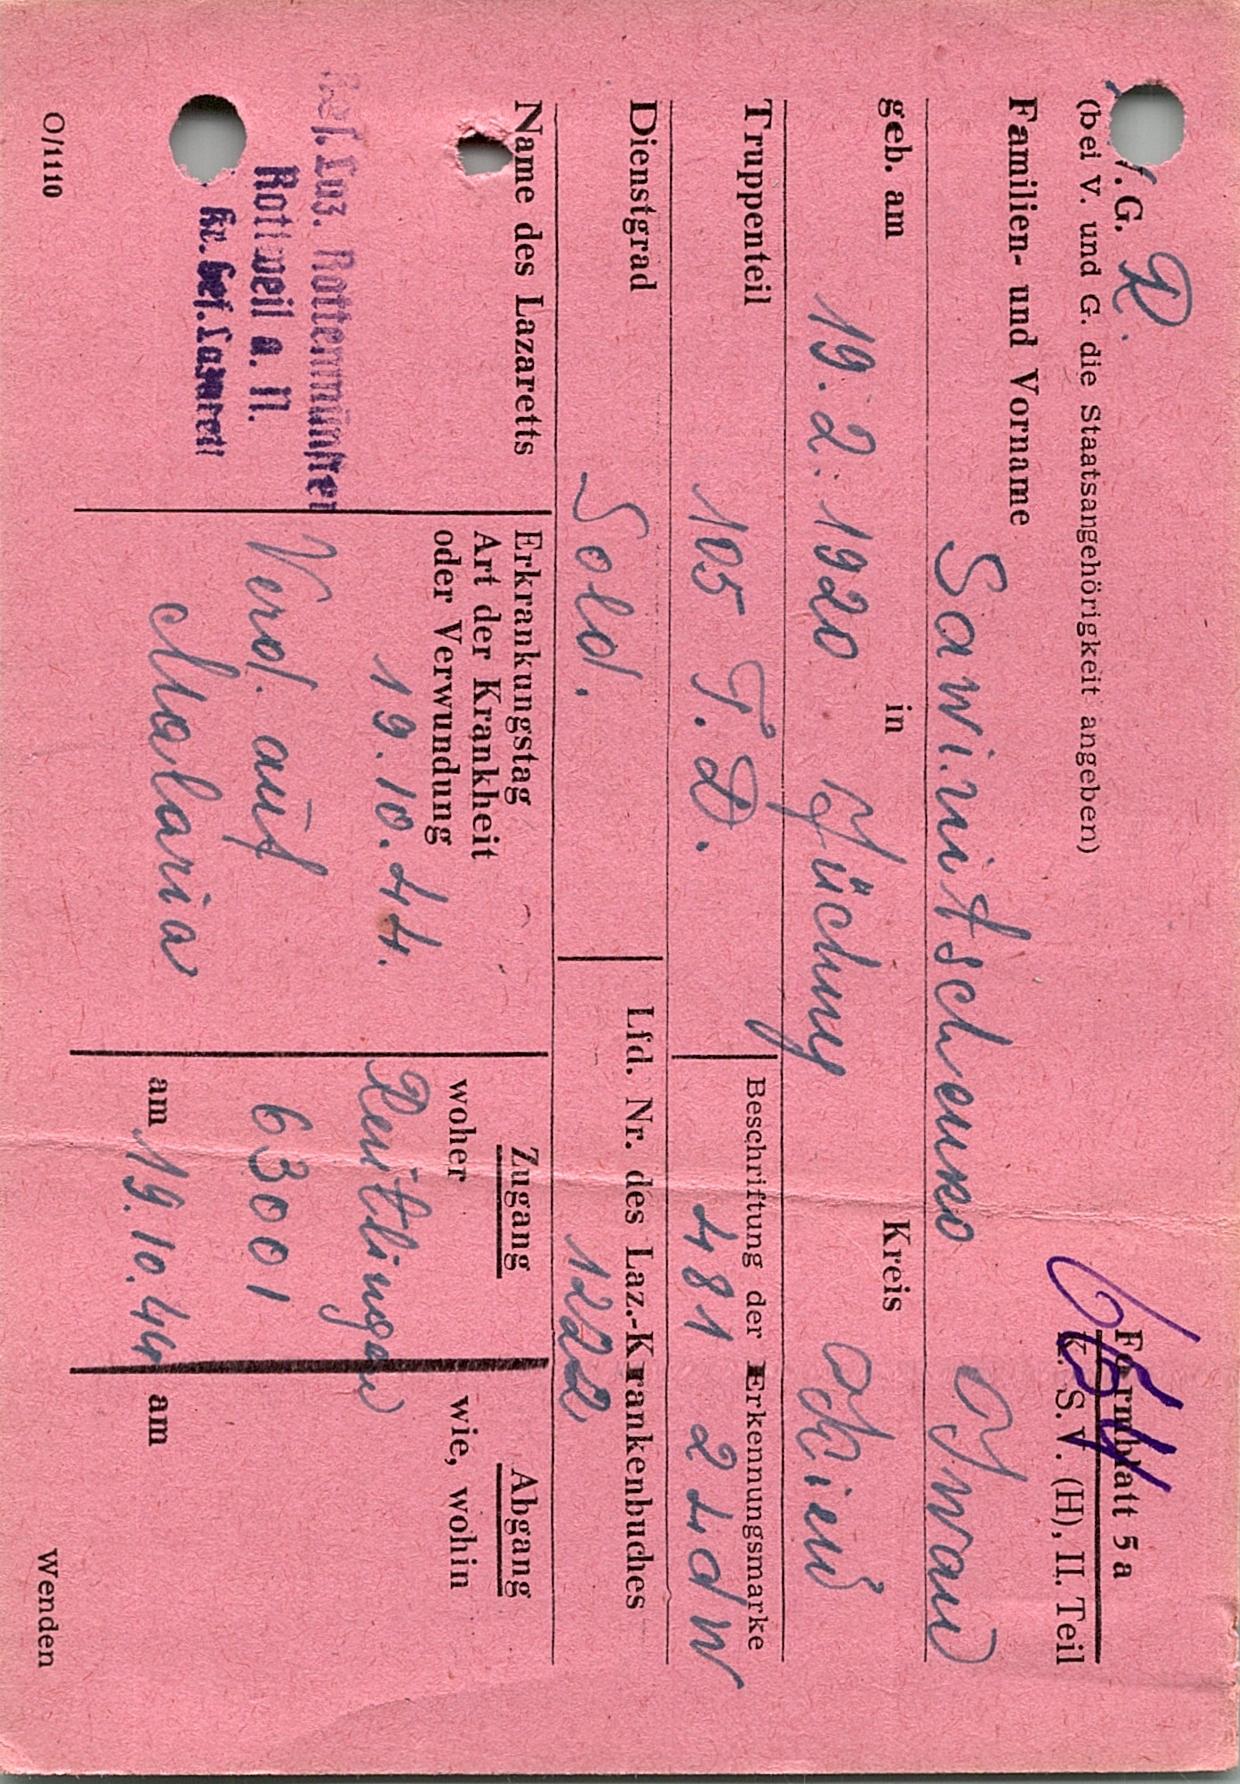 V.G. R.
(bei V. und G. die Staatsangehörigkeit angeben)
Formblatt 5 a
K. S. V. (H), II. Teil
Familien- und Vorname Sawinitschenko Iwan
geb. am 19.2.1920 in Kreis Kiew
Truppenteil 105 T. D.
Beschriftung der Erkennungsmarke
481 Z 4 d W
Dienstgrad Sold.
Lfd. Nr. des Laz.-Krankenbuches
1222
Name des Lazaretts
Ref. Laz. Rottenmünster
Rottweil a. N.
Kr. Gef. Lazarett
Erkrankungstag
Art der Krankheit
oder Verwundung
19.10.44.
Verd. auf
Malaria
Zugang
woher
Reutlingen
63001
am 19.10.44
Abgang
wie, wohin
am
O/1110
Wenden